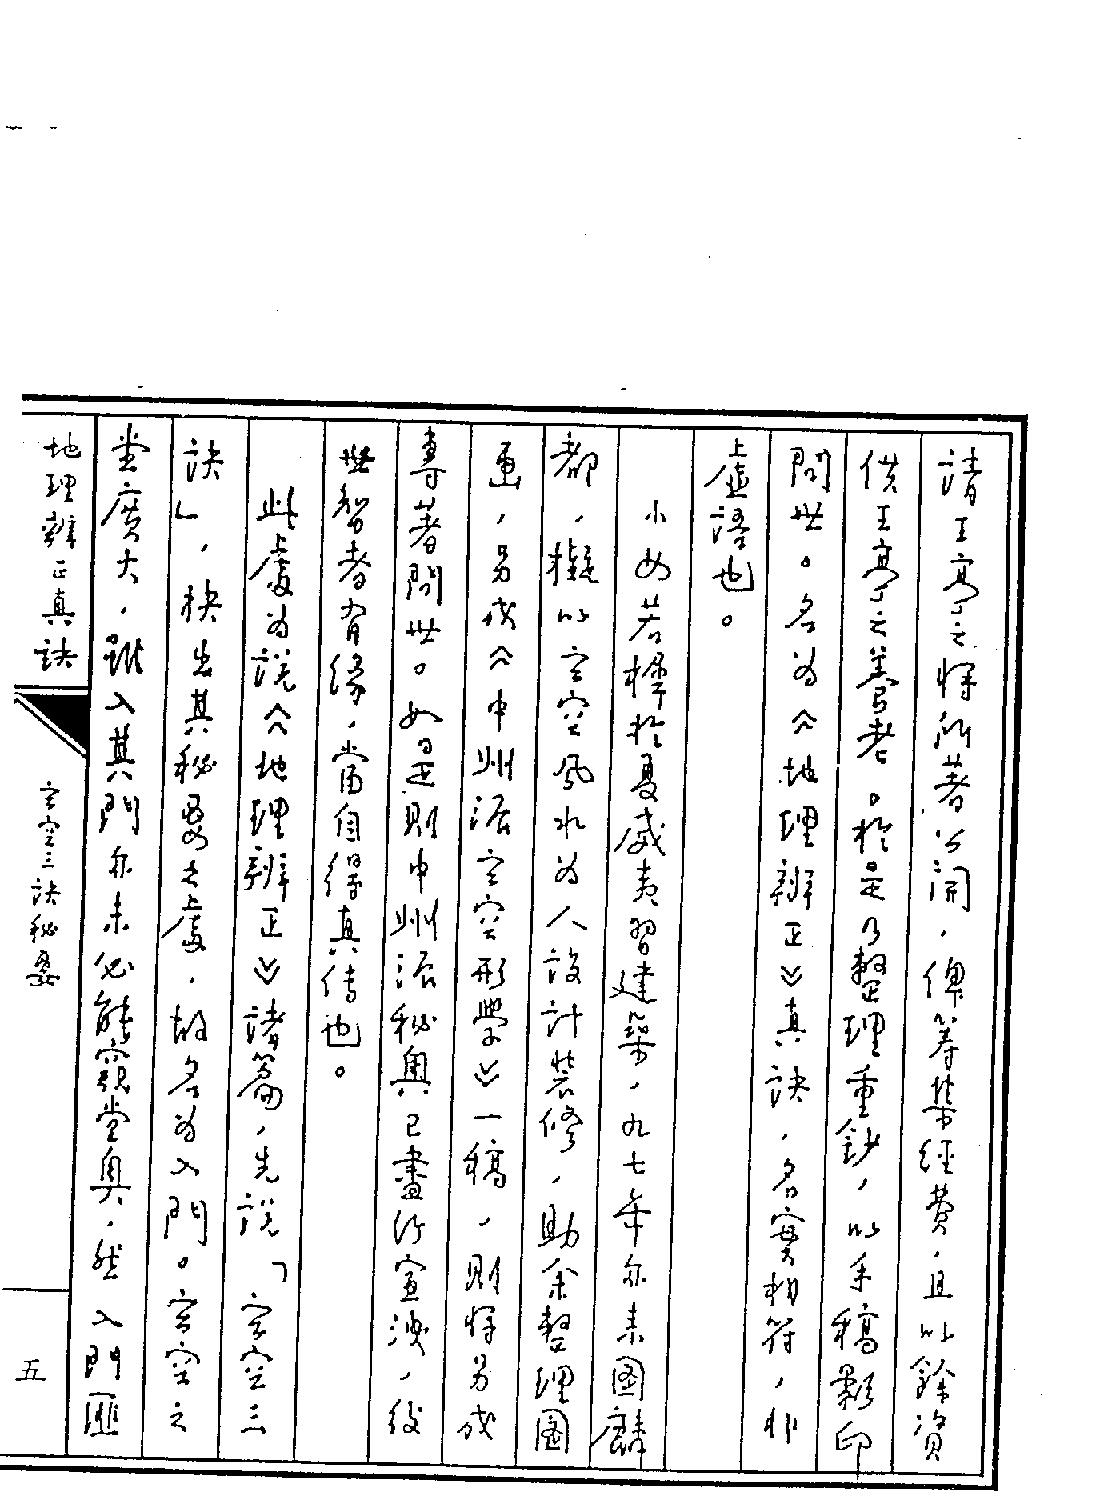 請王亭之將所著公開，俾籌集經費，且以餘資
供王亭之養老。於是乃整理重鈔，以手稿影印
問世。名為《地理辨正》真訣，名實相符，非
虛語也。
小女若樺於夏威夷習建築，九七年亦来圖麟
都，擬以玄空風水為人設計裝修，助余整理圖
画，另成《中州派玄空形學》一稿，則將另成
專著問世。如是則中州派秘奧已盡行宣洩，後
世智者有緣，當自得真傳也。
此處為說《地理辨正》諸篇，先說「玄空三
訣」，抉出其秘要之處，故名為入門。玄空之
堂廣大，雖入其門亦未必能窺堂奧，然入門匪
地理辨正真訣
玄空三訣秘要
五